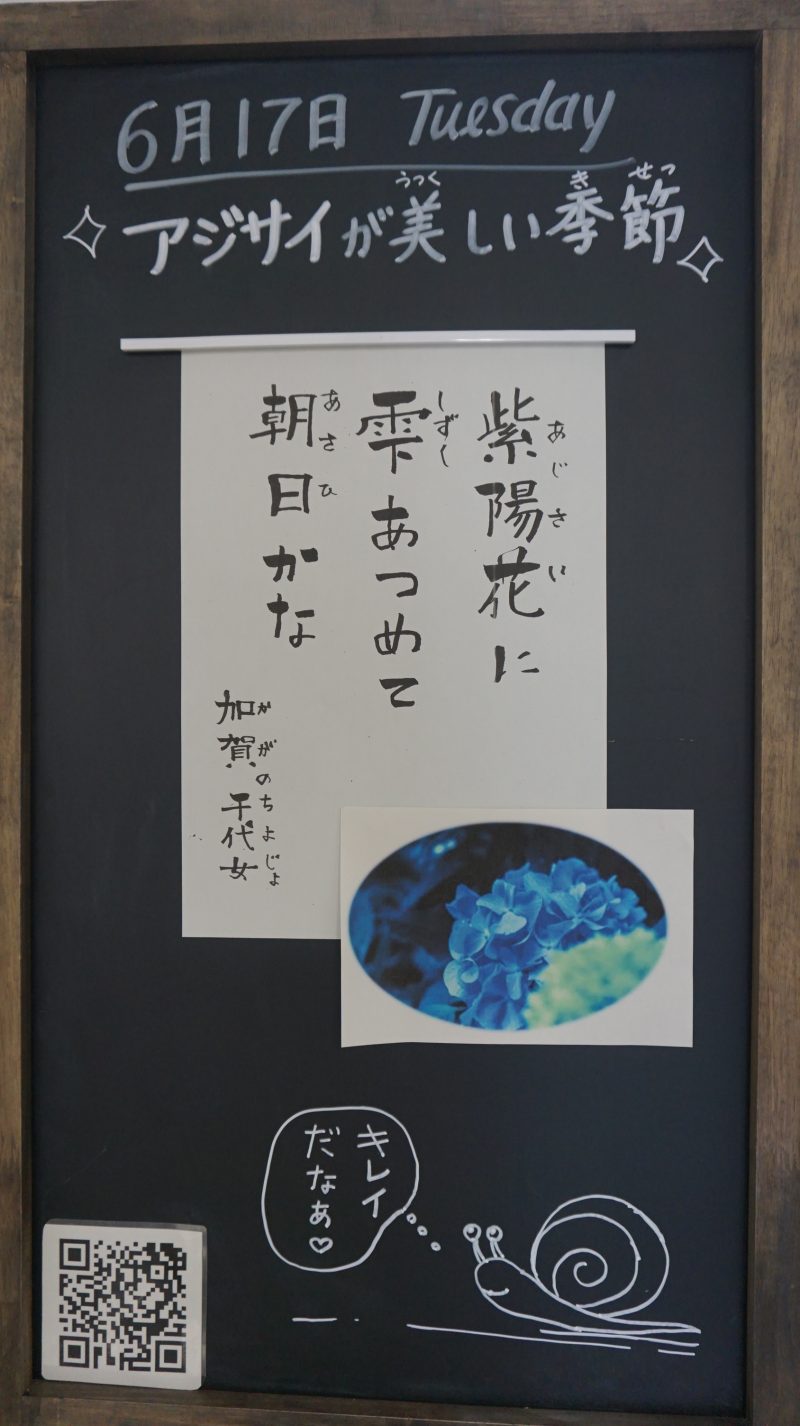 6月17日 Tuesday
うつく き せつ
アジサイが美しい季節
紫陽花に
あじさい
雫あつめて
しずく
朝日かな
あさひ
加賀千代女
かがのちよじょ
キレイ
だなぁ♡